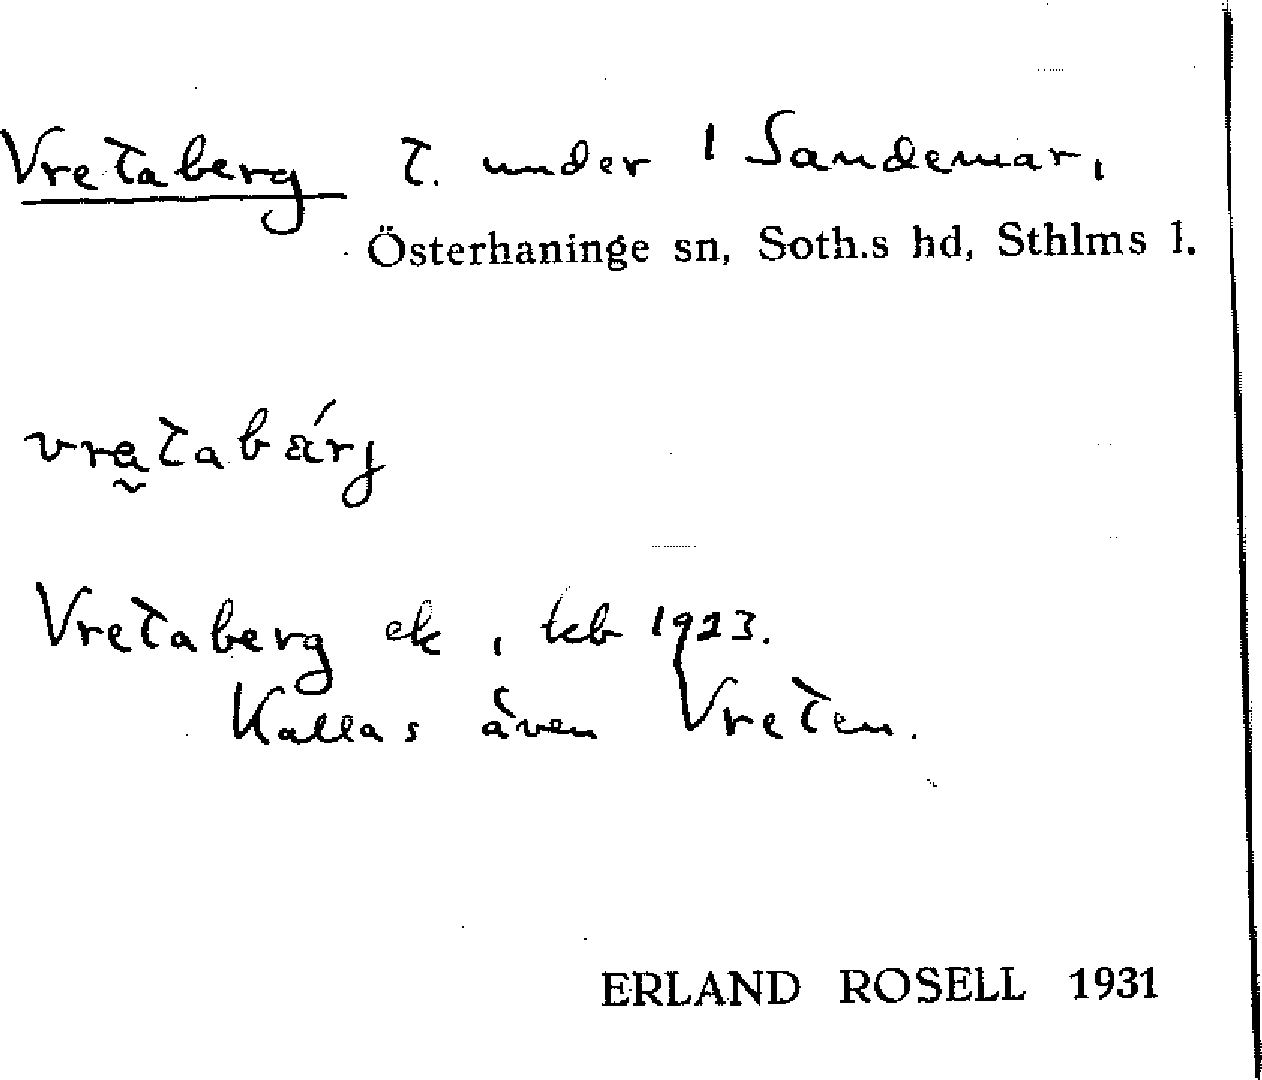 Vretaberg t. under 1 Sandemar,
Österhaninge sn, Soth.s hd, Sthlms l.
vretabǽrj
Vretaberg ek, kb 1923.
Kallas även Vreten.
ERLAND ROSELL 1931